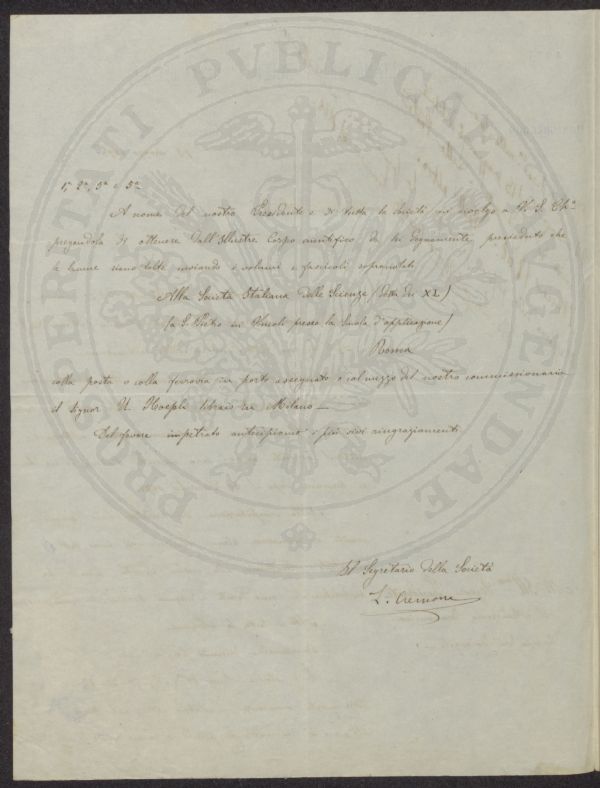 1ª, 2ª, 3ª e 5ª
A nome del nostro Presidente e di tutta la Società mi rivolgo a V. S. Ch.ª
pregandola di ottenere dall'Illustre Corpo scientifico da lei degnamente presieduto che
le lacune siano tolte inviando i volumi e fascicoli sopranotati
Alla Società Italiana delle Scienze (detta dei XL)
(a S. Pietro in Vincoli presso la Scuola d'applicazione)
Roma
colla posta o colla ferrovia in porto assegnato o col mezzo del nostro commissionario
il Signor U. Hoepli libraio in Milano—
Del favore impetrato anticipiamo i più vivi ringraziamenti.
Il Segretario della Società
L. Cremona
PROSPERITATI PVBLICAE AVGENDAE